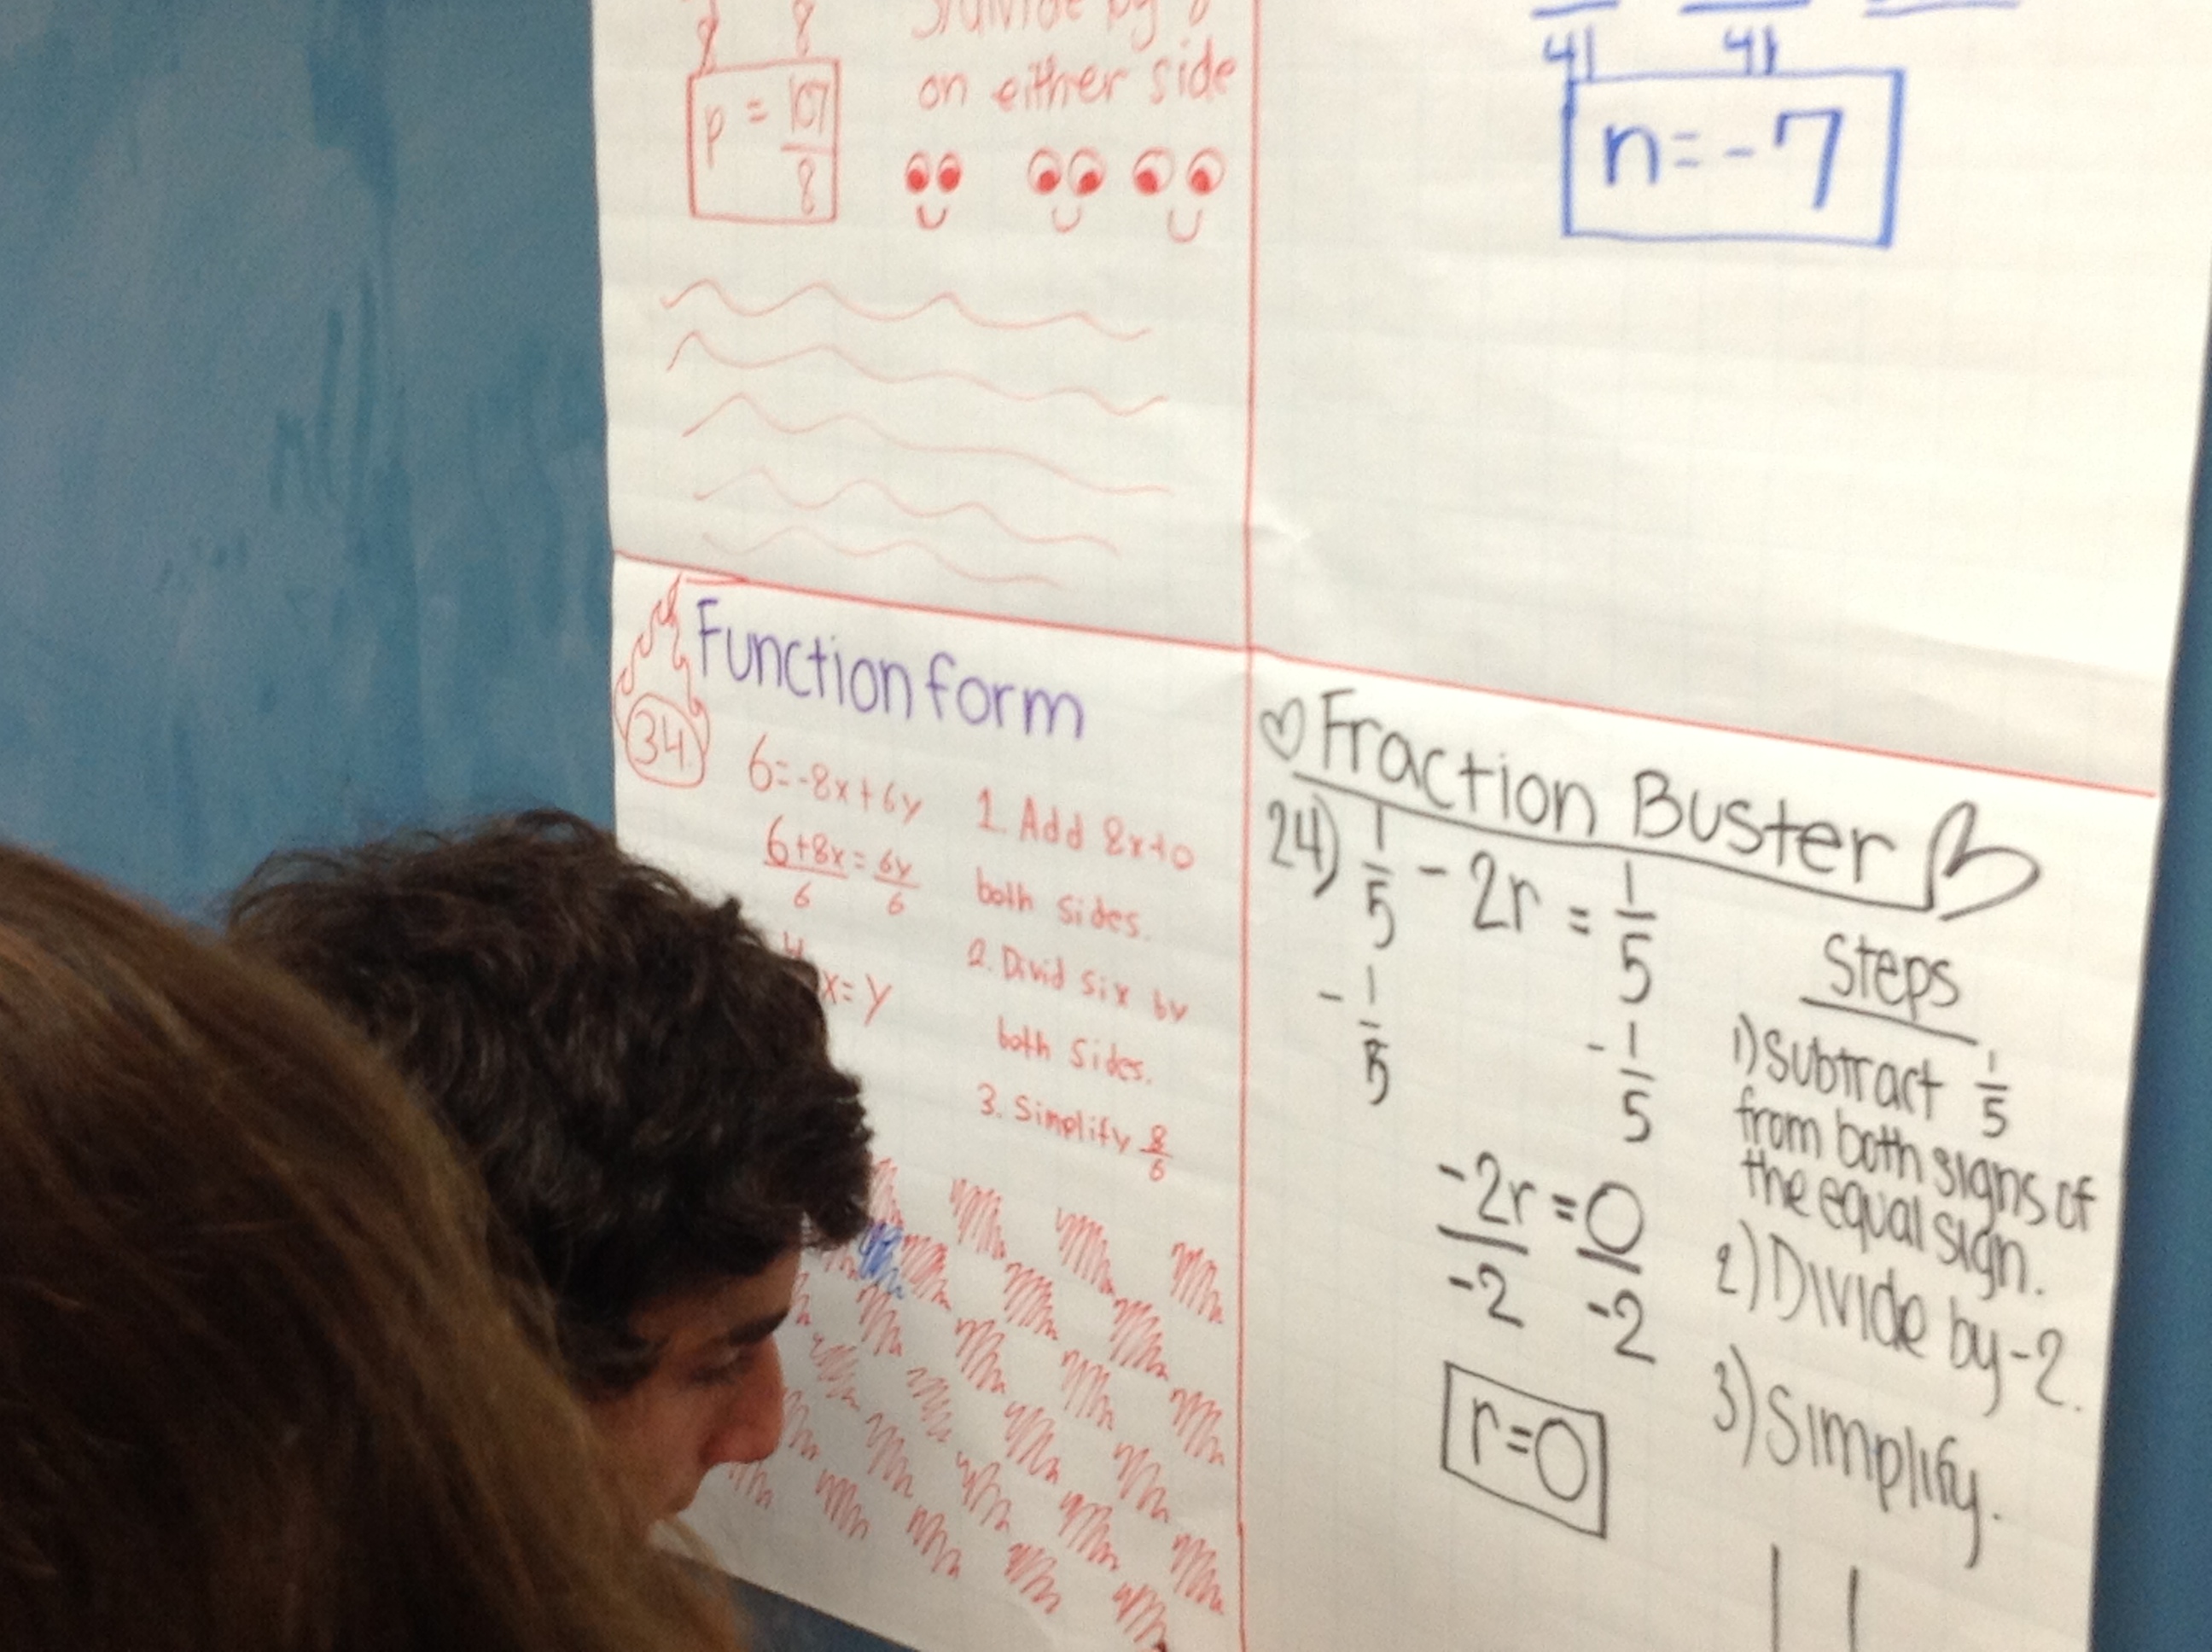 8 8
p = 107/8
divide by 8
on either side
41 41
n = -7
Function form
34.
6 = -8x + 6y
6 + 8x = 6y
6 6
x = y
1. Add 8x to
both sides.
2. Divid six by
both sides.
3. Simplify 8/6
Fraction Buster
24) 1/5 - 2r = 1/5
- 1/5 - 1/5
-2r = 0
-2 -2
r = 0
Steps
1) Subtract 1/5
from both signs of
the equal sign.
2) Divide by -2.
3) Simplify.